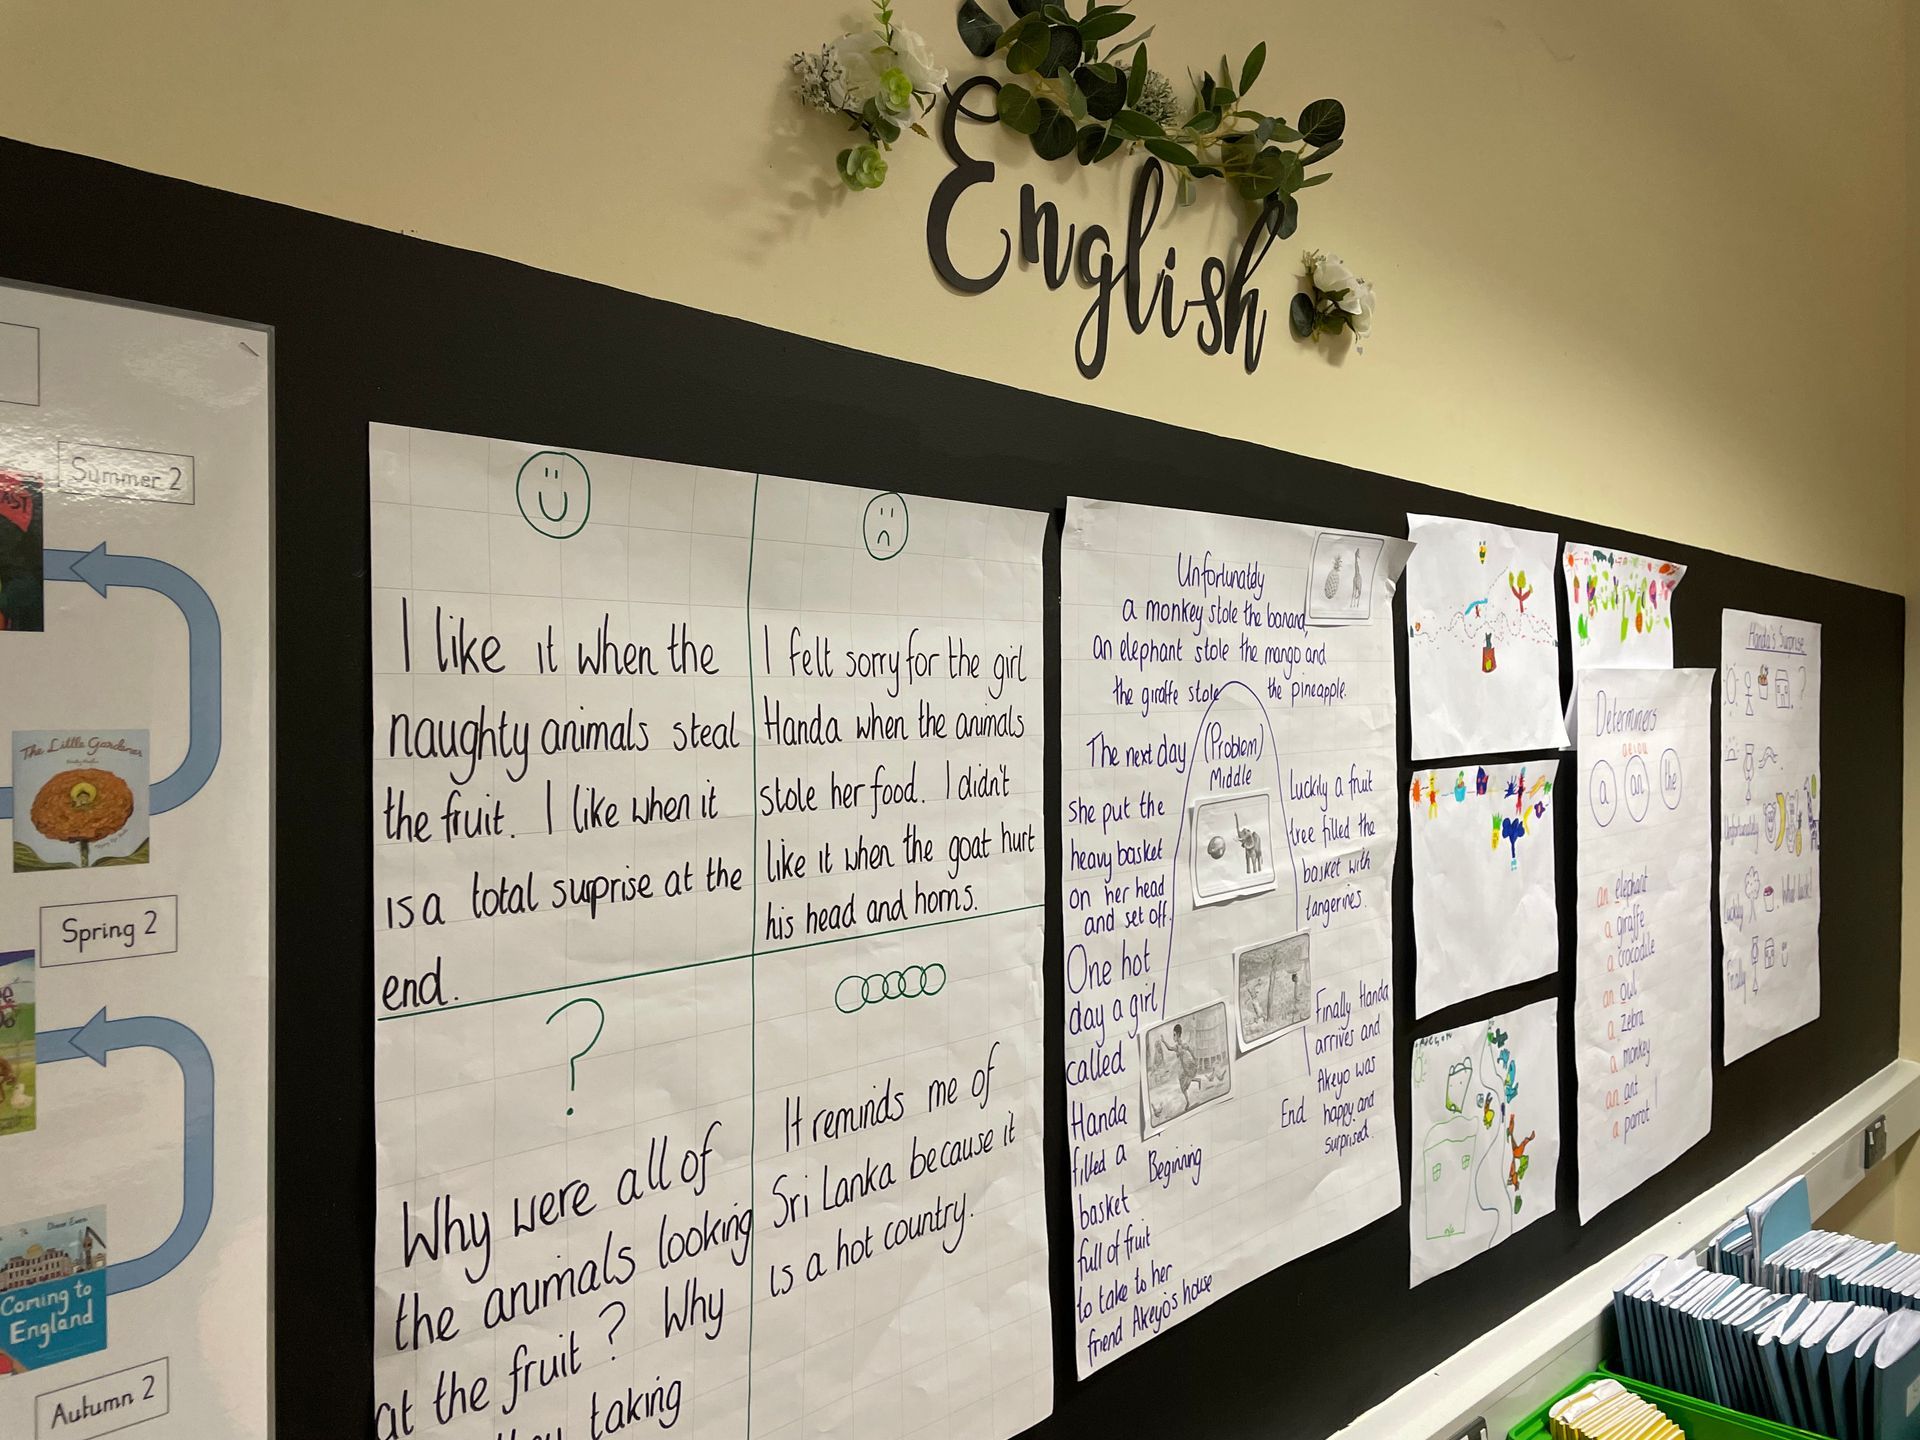 English
Summer 2
The Little Gardener
Spring 2
Coming to
England
Autumn 2
I like it when the
naughty animals steal
the fruit. I like when it
is a total surprise at the
end.
I felt sorry for the girl
Handa when the animals
stole her food. I didn't
like it when the goat hurt
his head and horns.
?
Why were all of
the animals looking
at the fruit? Why
taking
It reminds me of
Sri Lanka because it
is a hot country.
Unfortunately
a monkey stole the banana,
an elephant stole the mango and
the giraffe stole the pineapple.
The next day
she put the
heavy basket
on her head
and set off.
(Problem)
Middle
Luckily a fruit
tree filled the
basket with
tangerines.
One hot
day a girl
called
Handa
filled a
basket
full of fruit
to take to her
friend Akeyo's house
Beginning
Finally Handa
arrives and
Akeyo was
happy and
surprised.
End
Determiners
a e i o u
a an the
an elephant
a giraffe
a crocodile
an owl
a zebra
a monkey
an ant
a parrot
Handa's Surprise
?
Unfortunately
Luckily
What luck!
Finally